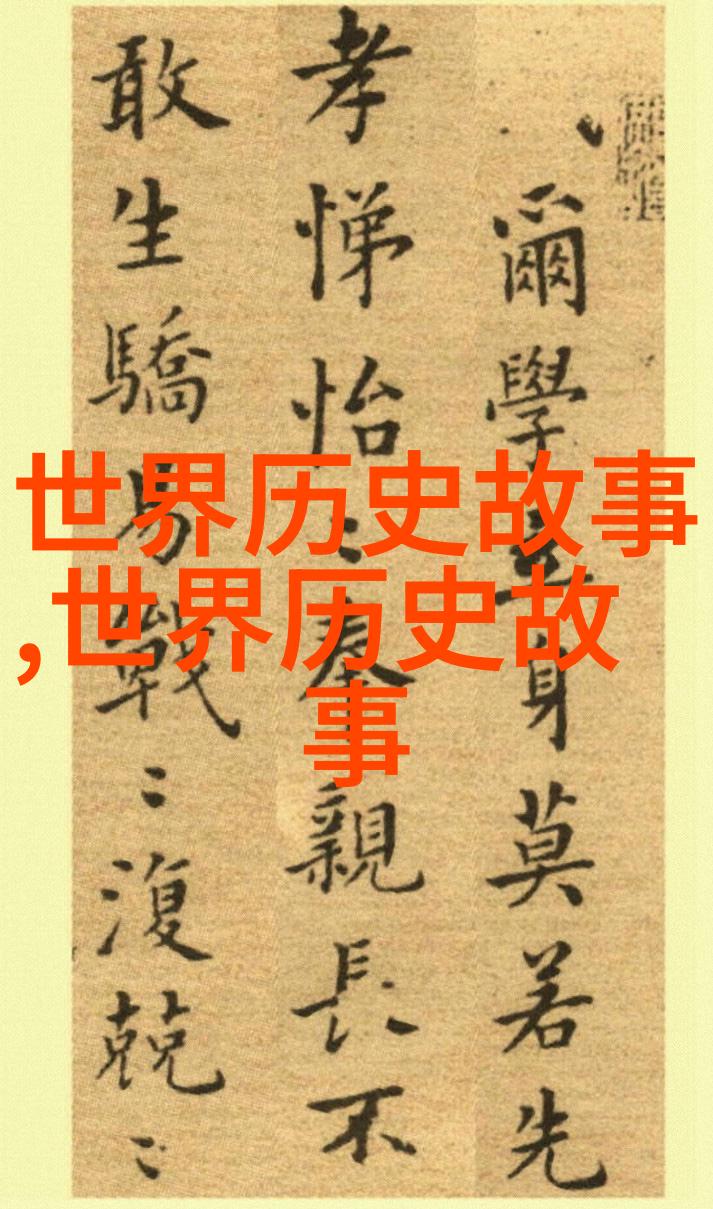 世界历史故事
,世界历史故
事
爾學立身莫若先
孝悌怡〻奉親長不
敢生驕易戰〻復兢〻